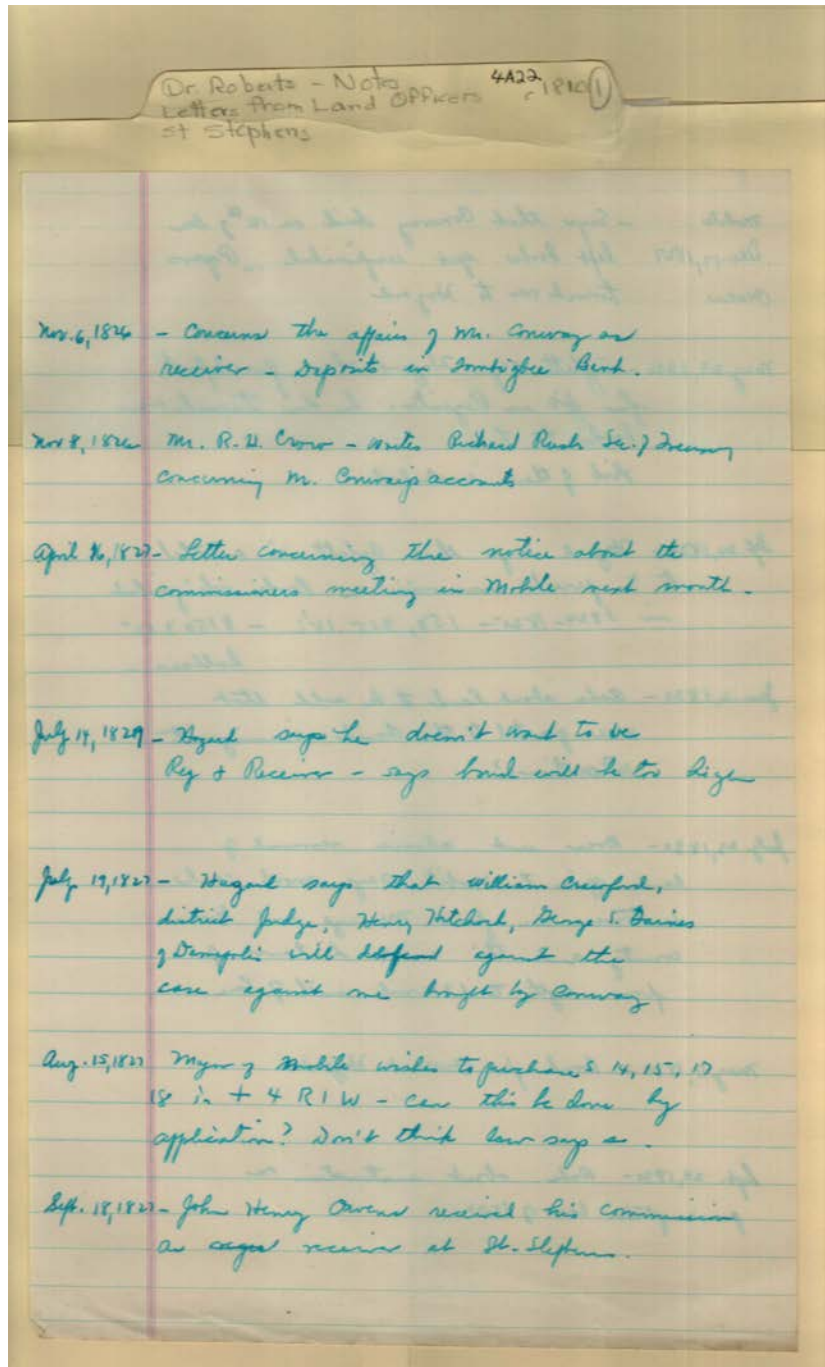 Dr. Roberts - Notes 4A22 1810 (1)
Letters from Land Officers
St Stephens
Nov. 6, 1826 - Concerns the affairs of Mr. Conway as
receiver - Deposits in Tombigbee Bank.
Nov 8, 1826 Mr. R. H. Crow - writes Richard Rush Sec. of Treasury
concerning M. accounts
April 16, 1827 - Letter concerning the notice about the
commissioners meeting in Mobile next month.
July 14, 1827 - Hazard says he doesn't want to be
Reg + Receiver - says bond will be too high
July 19, 1827 - Hazard says that William Crawford,
district Judge, Henry Hitchcock, George S. Gaines
of Demopolis will defend against the
case against me brought by Conway
Aug. 15, 1827 Mayor of Mobile wishes to purchase S 14, 15, 17
18 in T 4 R I W - can this be done by
application? Don't think law says so.
Sept. 18, 1827 - John Henry Owens received his commission
as receiver at St. Stephens.